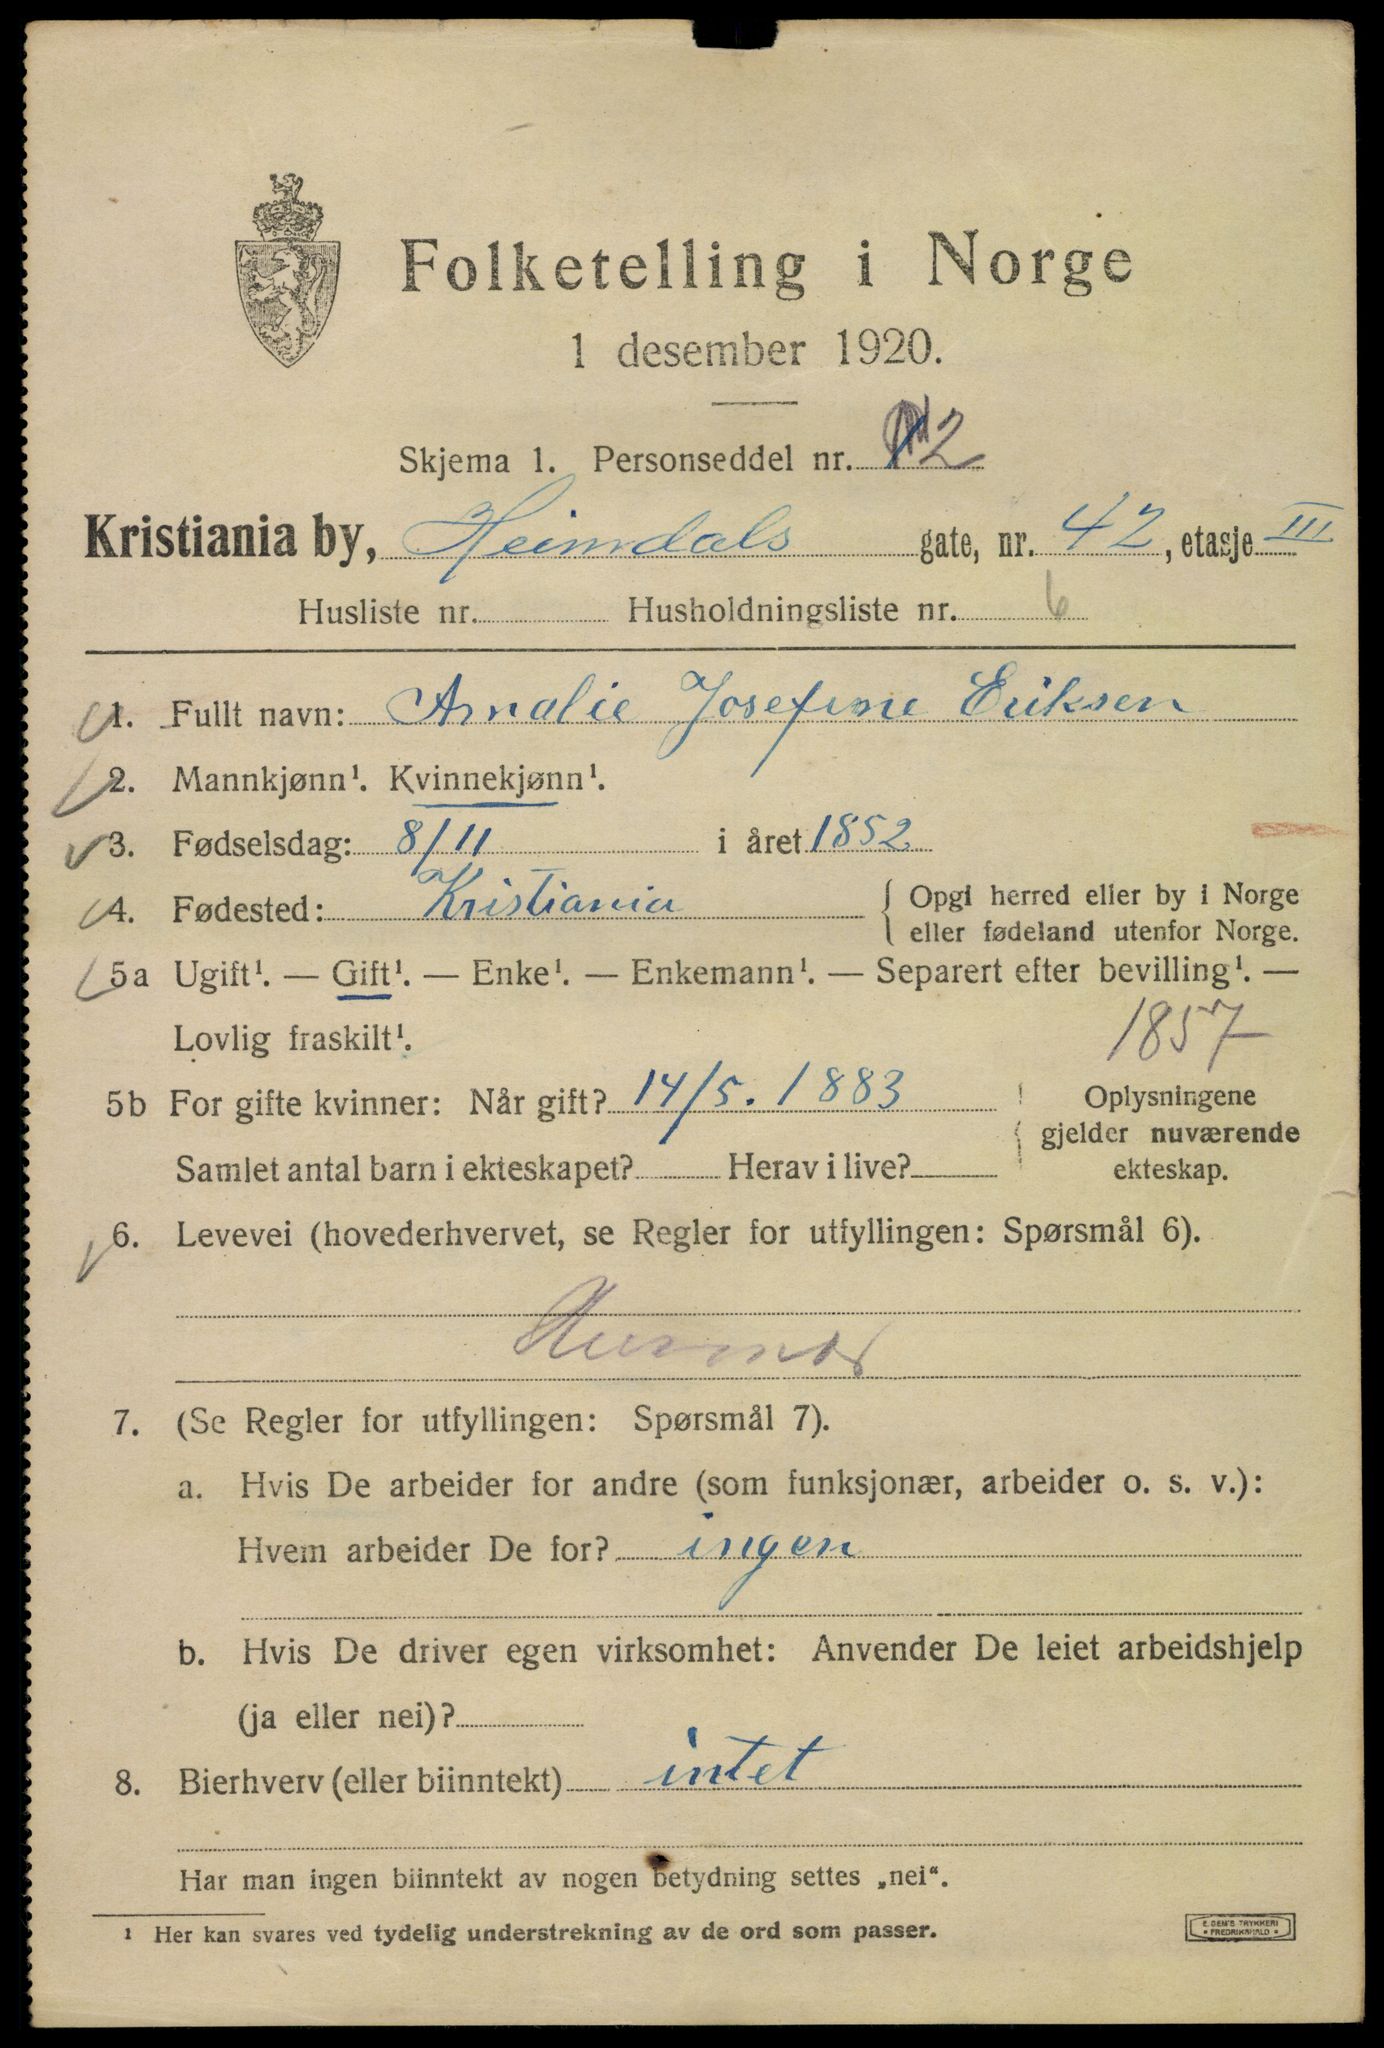 Folketelling i Norge
1 desember 1920.
Skjema 1. Personseddel nr. 2
Kristiania by, Heimdals gate, nr. 42, etasje III
Husliste nr. Husholdningsliste nr. 6
1. Fullt navn: Amalie Josefine Eriksen
2. Mannkjønn¹. Kvinnekjønn¹.
3. Fødselsdag: 8/11 i året 1852
4. Fødested: Kristiania { Opgi herred eller by i Norge
eller fødeland utenfor Norge.
5a Ugift¹. — Gift¹. — Enke¹. — Enkemann¹. — Separert efter bevilling¹. —
Lovlig fraskilt¹. 1857
5b For gifte kvinner: Når gift? 14/5. 1883 Oplysningene
gjelder nuværende
Samlet antal barn i ekteskapet? Herav i live? ekteskap.
6. Levevei (hovederhvervet, se Regler for utfyllingen: Spørsmål 6).
Husmor
7. (Se Regler for utfyllingen: Spørsmål 7).
a. Hvis De arbeider for andre (som funksjonær, arbeider o. s. v.):
Hvem arbeider De for? ingen
b. Hvis De driver egen virksomhet: Anvender De leiet arbeidshjelp
(ja eller nei)?
8. Bierhverv (eller biinntekt) intet
Har man ingen biinntekt av nogen betydning settes „nei“.
¹ Her kan svares ved tydelig understrekning av de ord som passer.
E. SEM'S TRYKKERI
* FREDRIKSHALD *